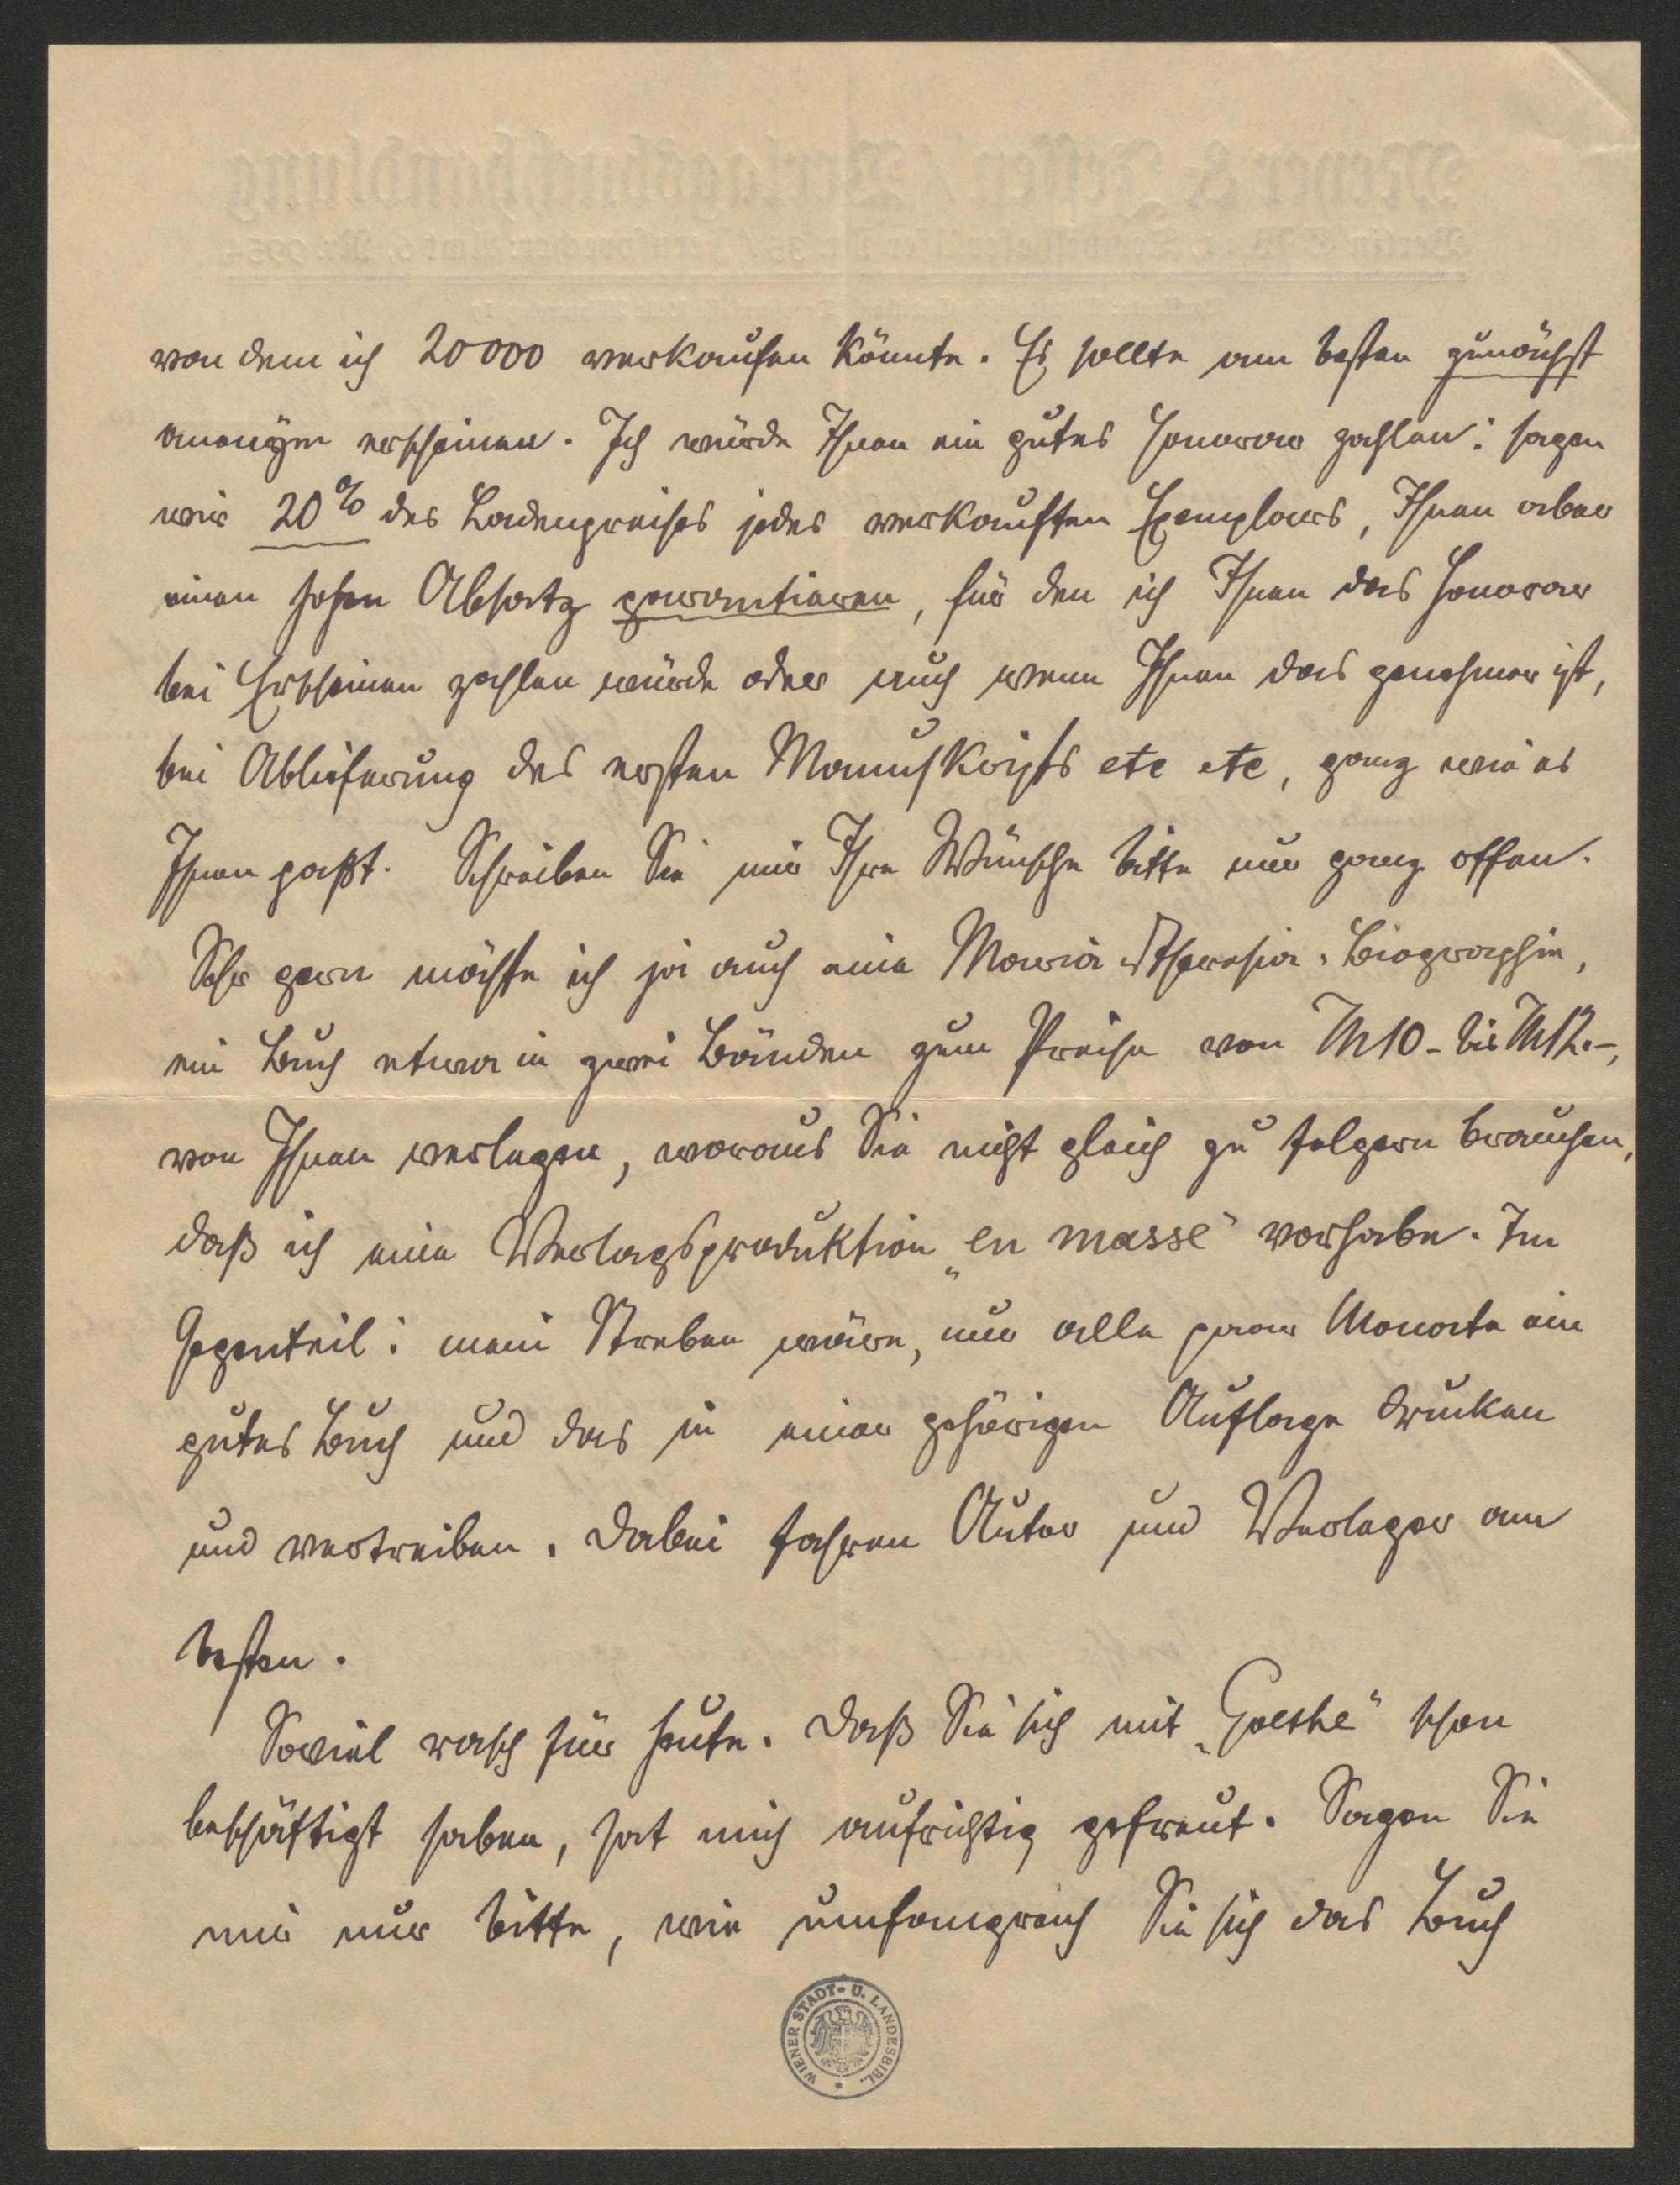 von dem ich 20000 verkaufen könnte. Es sollte am besten zunächst
anonym erscheinen. Ich würde Ihnen ein gutes Honorar zahlen: sagen
wir 20% des Ladenpreises jedes verkauften Exemplars, Ihnen aber
einen hohen Absatz garantieren, für den ich Ihnen das Honorar
bei Erscheinen zahlen würde oder auch wenn Ihnen das genehmer ist,
bei Ablieferung des ersten Manuskripts etc etc, ganz wie es
Ihnen paßt. Schreiben Sie mir Ihre Wünsche bitte nur ganz offen.
Sehr gern möchte ich ja auch eine Maria Theresia-Biographie,
ein Buch etwa in zwei Bänden zum Preise von M10.- bis M12.-,
von Ihnen verlegen, woraus Sie nicht gleich zu folgern brauchen,
daß ich eine Verlagsproduktion „en masse“ vorhabe. Im
Gegenteil: mein Streben wäre, nur alle paar Monate ein
gutes Buch und das in einer gehörigen Auflage drucken
und vertreiben. Dabei fahren Autor und Verleger am
besten.
Soviel rasch für heute. Daß Sie sich mit „Goethe“ schon
beschäftigt haben, hat mich aufrichtig gefreut. Sagen Sie
mir nur bitte, wie umfangreich Sie sich das Buch
WIENER STADT- U. LANDESBIBL.